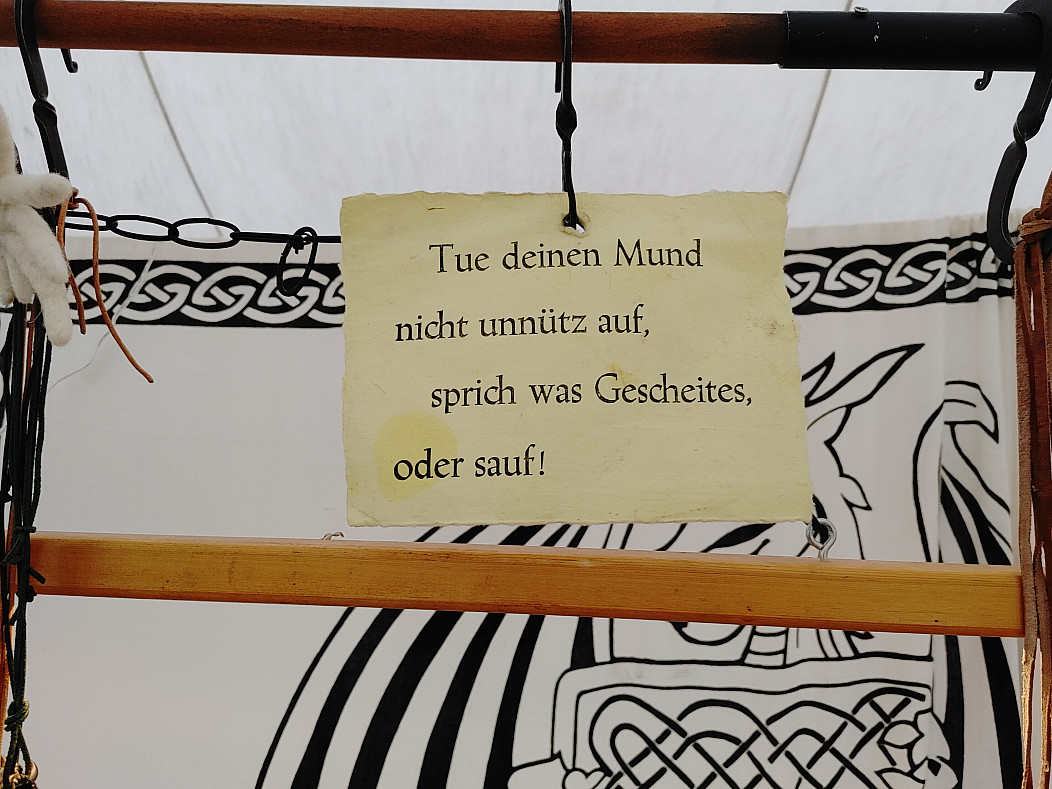 Tue deinen Mund
nicht unnütz auf,
sprich was Gescheites,
oder sauf!